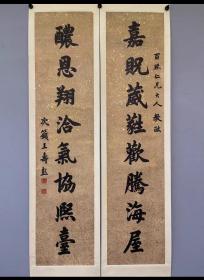 百珠仁兄大人教政
嘉贶葳蕤歡騰海屋
醲恩翔洽氣協熙臺
次箴王壽彭